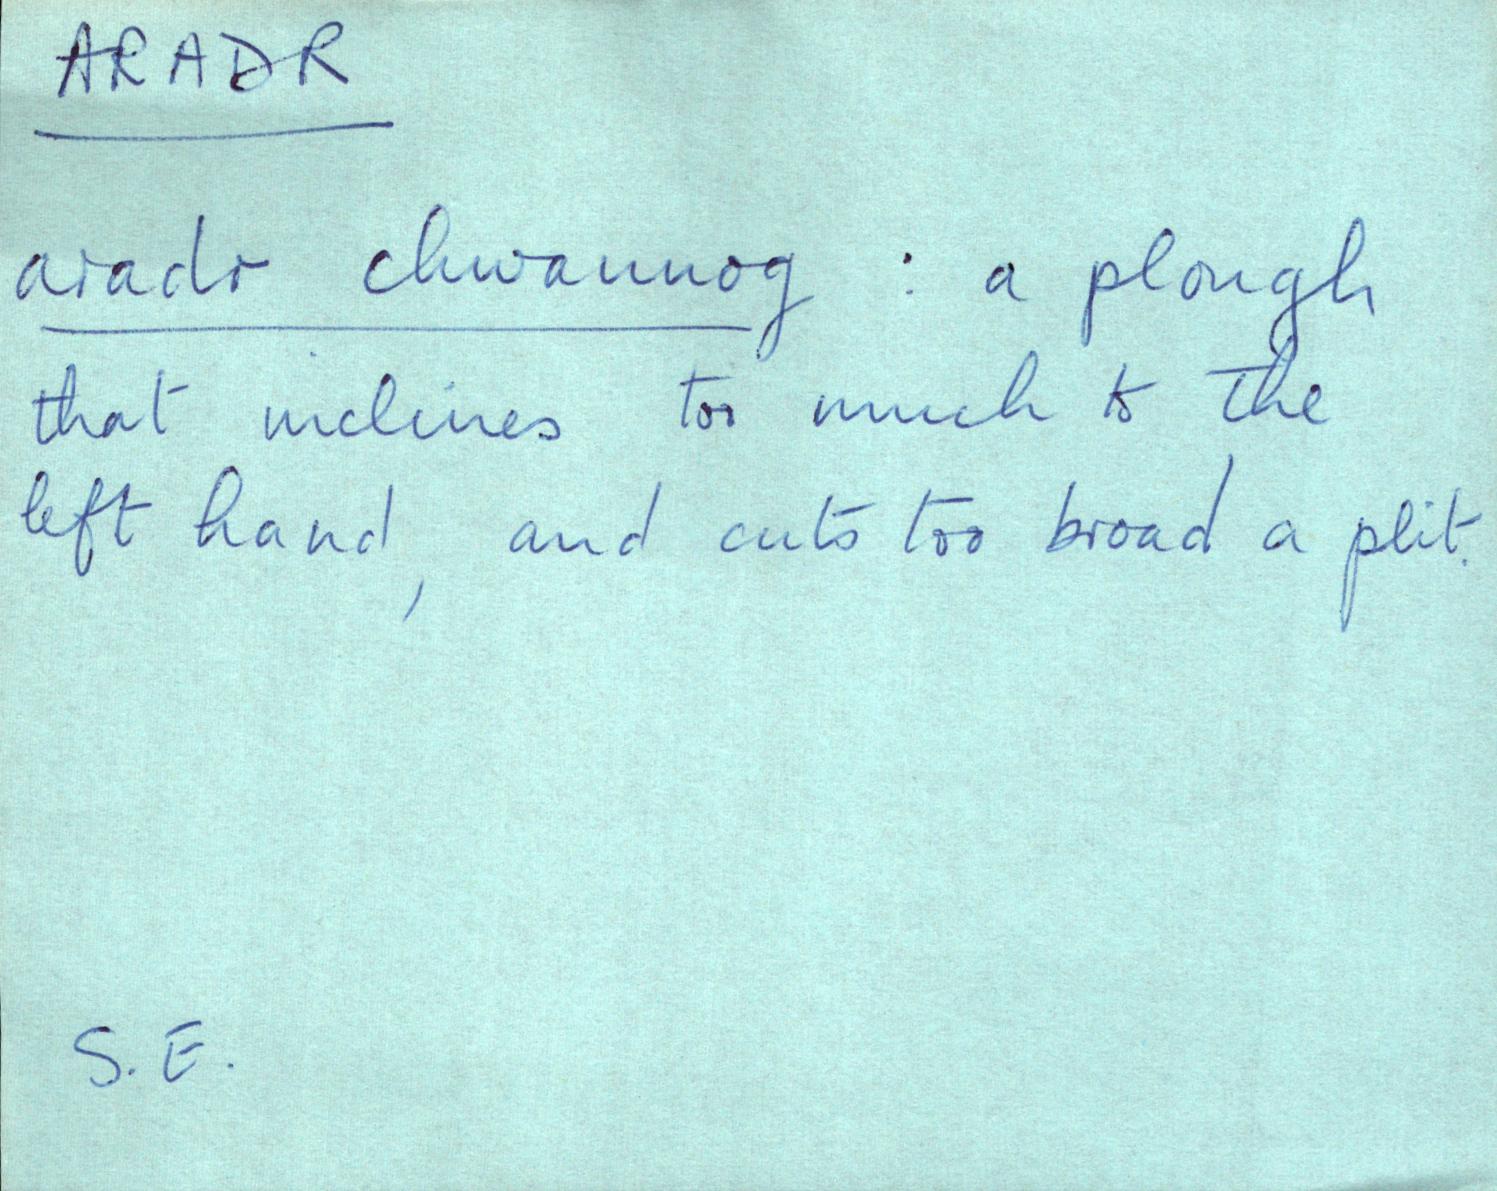 ARADR
aradr chwannog : a plough
that inclines too much to the
left hand, and cuts too broad a plit.
S. E.